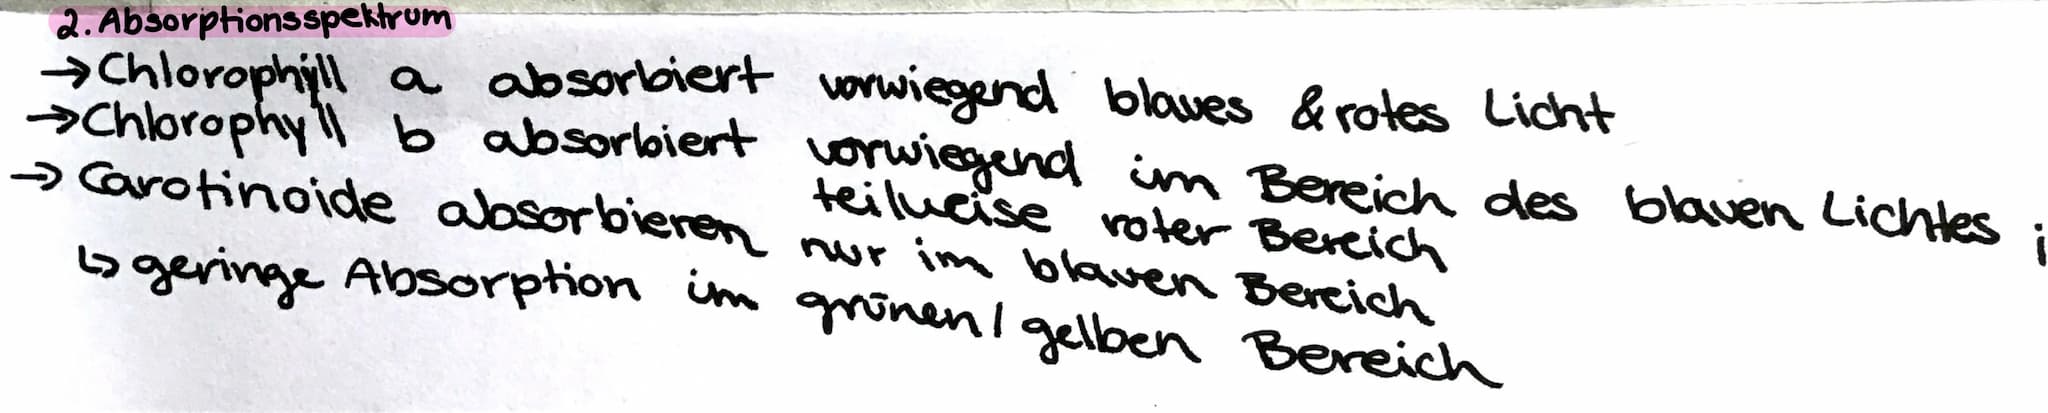 2. Absorptionsspektrum
→ Chlorophyll a absorbiert vorwiegend blaues & rotes Licht
→ Chlorophyll b absorbiert vorwiegend im Bereich des blauen Lichtes ;
teilweise roter Bereich
→ Carotinoide absorbieren nur im blauen Bereich
↳ geringe Absorption im grünen / gelben Bereich